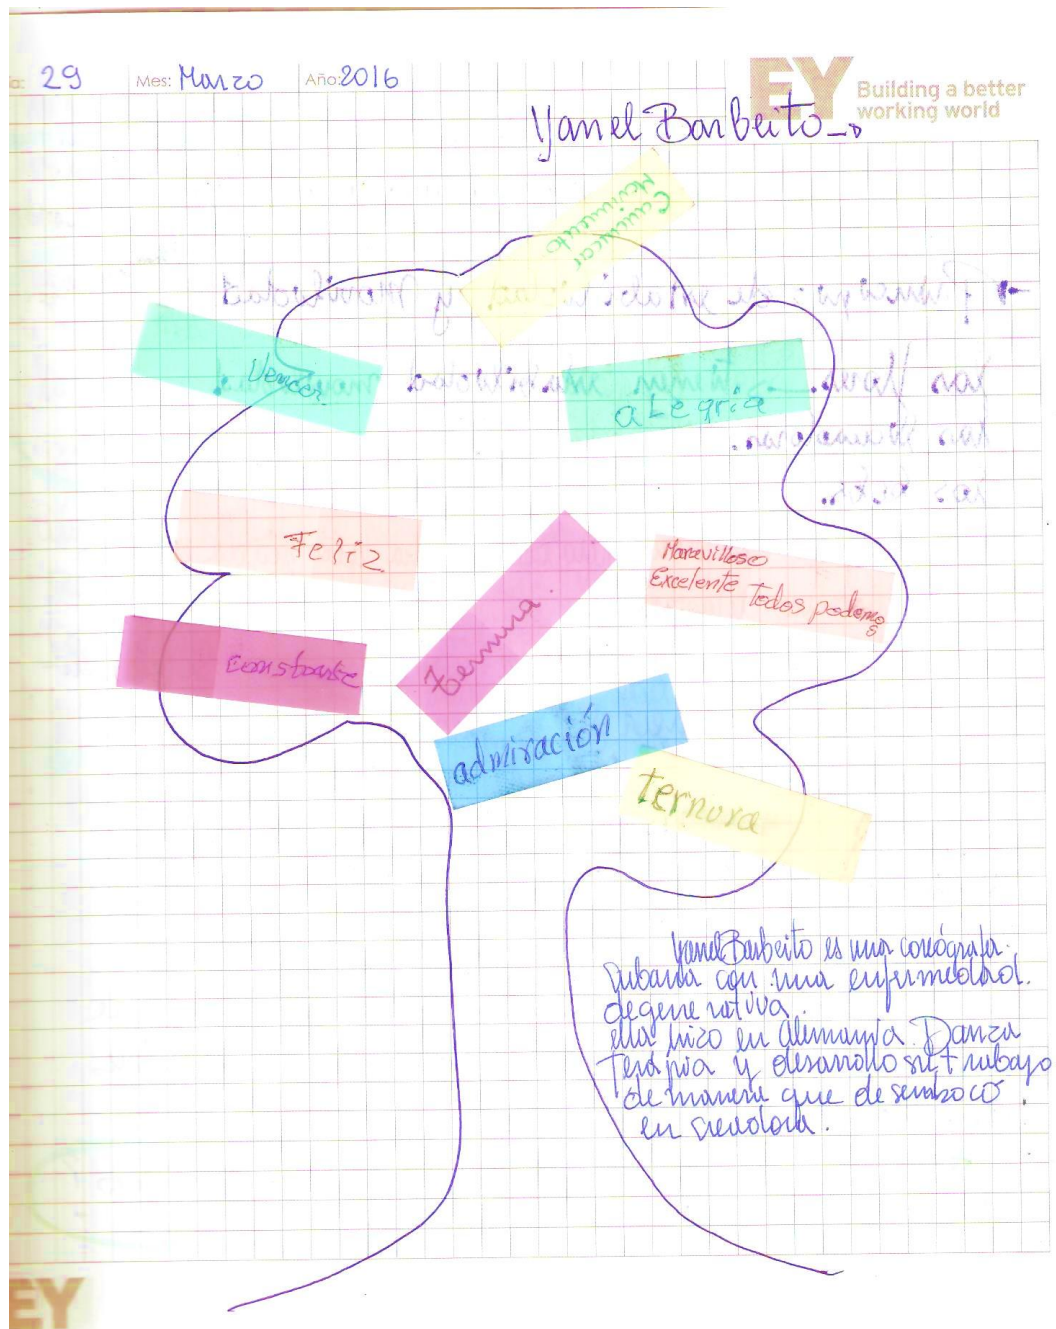 29 Mes: Marzo Año: 2016
EY Building a better
working world
Yanel Barbeito
Comunicar
Movimiento
Vencer
aLegria
Feliz
Maravilloso
Excelente Todos podemos
constante
Ternura.
admiración
ternura
Yanel Barbeito es una coreógrafa.
Cubana con una enfermedad.
degenerativa.
ella hizo en Alemania Danza
Terápia y desarrollo su trabajo
de manera que desenboco
en creadora.
EY